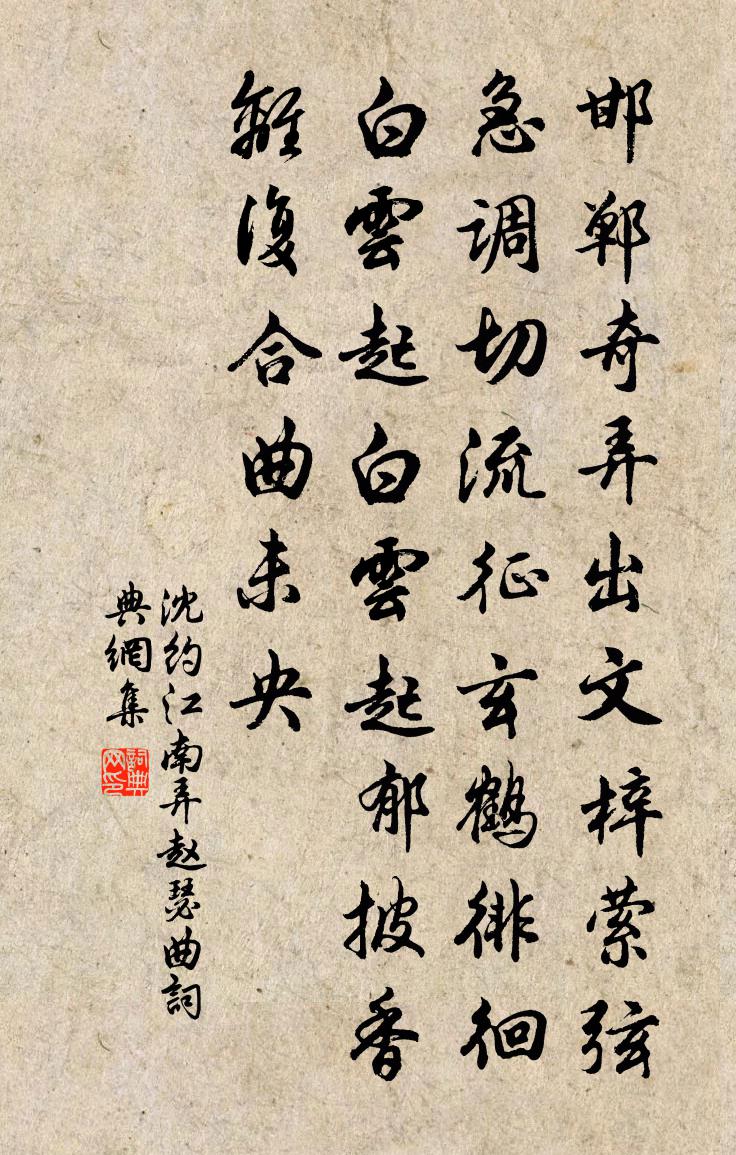 邯郸奇弄出文梓萦弦
急调切流征玄鹤徘徊
白雲起白雲起郁披香
離復合曲未央
沈约江南弄赵瑟曲詞
典網集
詞典网印